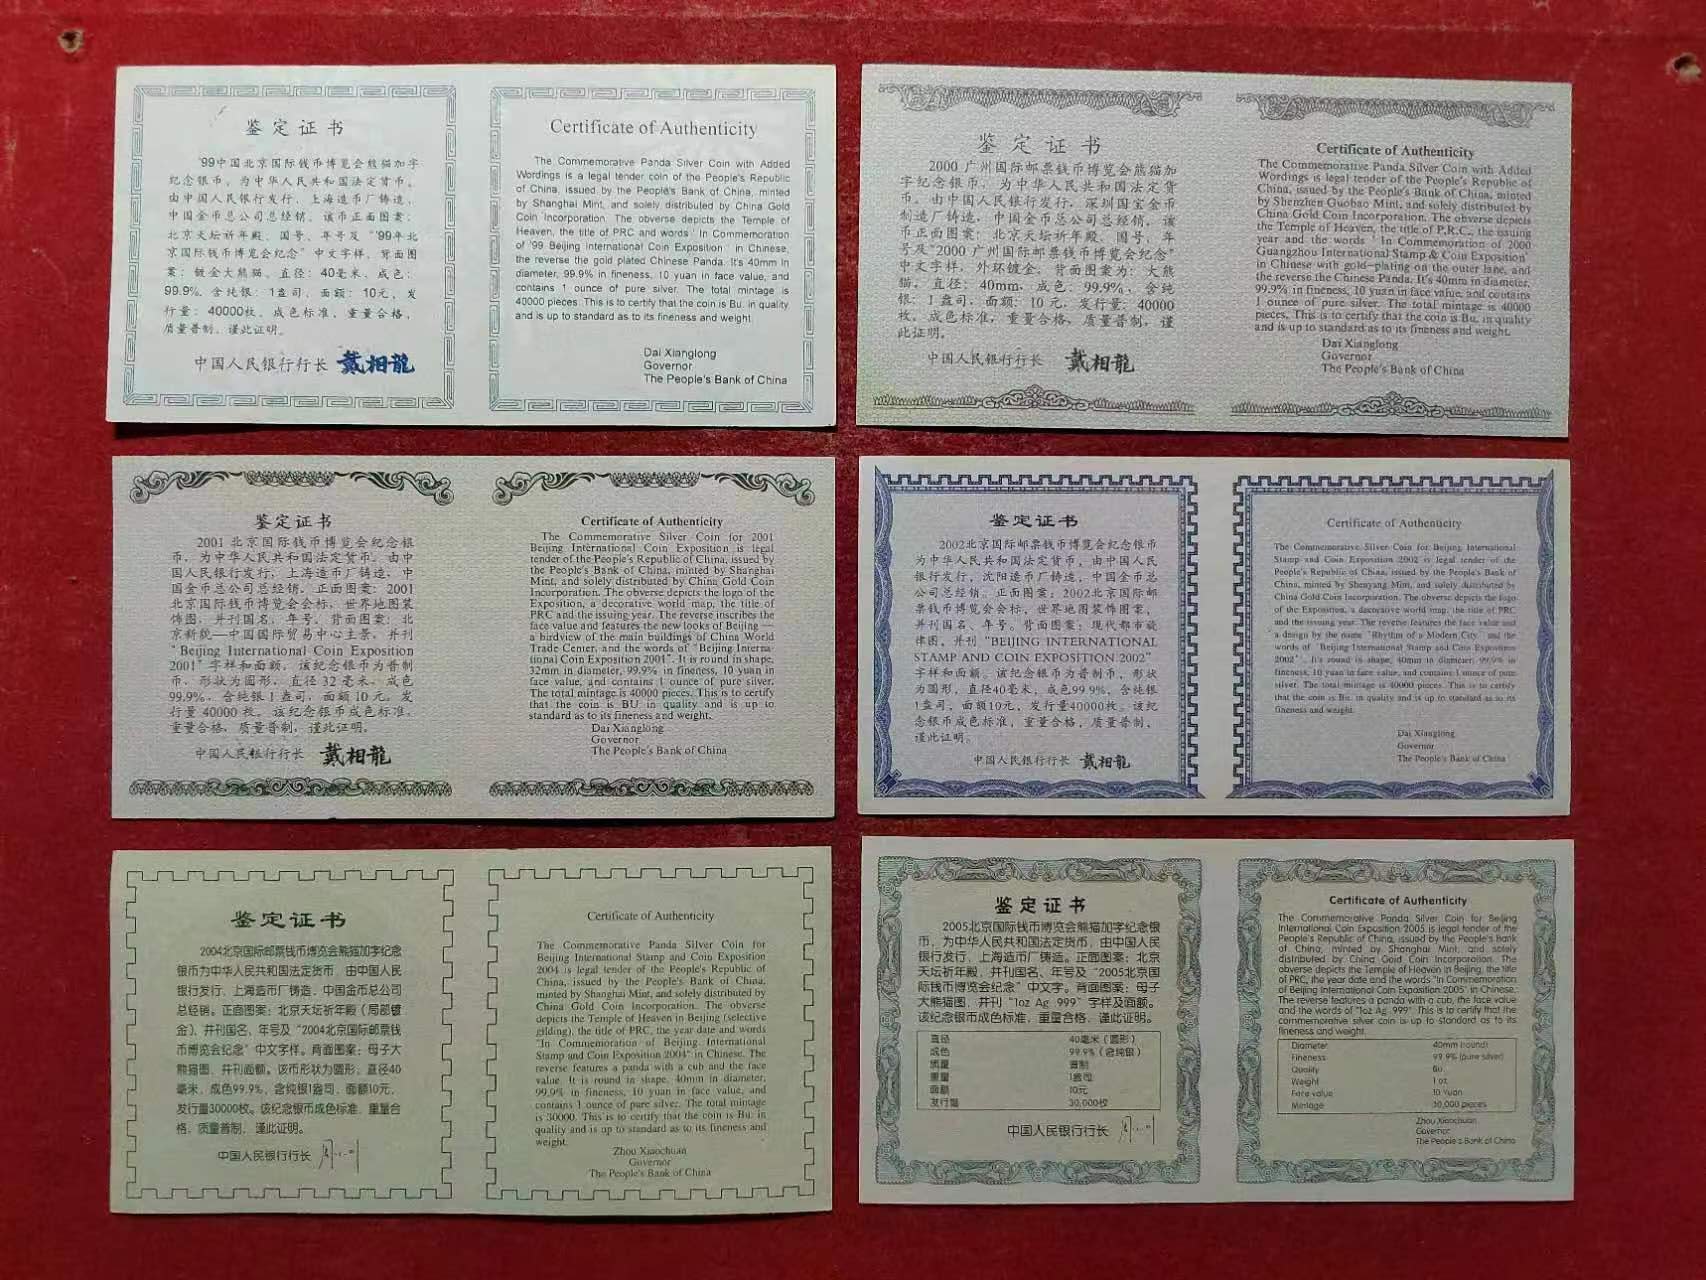 鉴定证书
'99中国北京国际钱币博览会熊猫加字
纪念银币，为中华人民共和国法定货币。
由中国人民银行发行，上海造币厂铸造，
中国金币总公司总经销。该币正面图案：
北京天坛祈年殿、国号、年号及"99年北
京国际钱币博览会纪念"中文字样，背面图
案：镀金大熊猫。直径：40毫米，成色：
99.9%，含纯银：1盎司，面额：10元，发
行量：40000枚。成色标准，重量合格，
质量普制，谨此证明。
中国人民银行行长 戴相龍
Certificate of Authenticity
The Commemorative Panda Silver Coin with Added
Wordings is a legal tender coin of the People's Republic
of China, issued by the People's Bank of China, minted
by Shanghai Mint, and solely distributed by China Gold
Coin Incorporation. The obverse depicts the Temple of
Heaven, the title of PRC and words ' In Commemoration
of '99 Beijing International Coin Exposition ' in Chinese,
the reverse the gold plated Chinese Panda. It's 40mm in
diameter, 99.9% in fineness, 10 yuan in face value, and
contains 1 ounce of pure silver. The total mintage is
40000 pieces. This is to certify that the coin is Bu. in quality
and is up to standard as to its fineness and weight.
Dai Xianglong
Governor
The People's Bank of China
鉴定证书
2000 广州国际邮票钱币博览会熊猫加
字纪念银币，为中华人民共和国法定货
币。由中国人民银行发行，深圳国宝金币
制造厂铸造，中国金币总公司总经销，该
币正面图案：北京天坛祈年殿、国号、年
号及"2000 广州国际邮票钱币博览会纪念"
中文字样，外环镀金，背面图案为：大熊
猫，直径：40mm，成色：99.9%，含纯
银：1 盎司，面额：10 元，发行量：40000
枚，成色标准，重量合格，质量普制，谨
此证明。
中国人民银行行长 戴相龍
Certificate of Authenticity
The Commemorative Panda Silver Coin with Added
Wordings is legal tender of the People's Republic of
China, issued by the People's Bank of China, minted
by Shenzhen Guobao Mint, and solely distributed by
China Gold Coin Incorporation. The obverse depicts
the Temple of Heaven, the title of P.R.C., the issuing
year and the words ' In Commemoration of 2000
Guangzhou International Stamp & Coin Exposition'
in Chinese with gold-plating on the outer lane, and
the reverse the Chinese Panda. It's 40mm in diameter,
99.9% in fineness, 10 yuan in face value, and contains
1 ounce of pure silver. The total mintage is 40000
pieces. This is to certify that the coin is Bu. in quality
and is up to standard as to its fineness and weight.
Dai Xianglong
Governor
The People's Bank of China
鉴定证书
2001 北京国际钱币博览会纪念银
币，为中华人民共和国法定货币。由中
国人民银行发行，上海造币厂铸造，中
国金币总公司总经销。正面图案：2001
北京国际钱币博览会会标，世界地图装
饰图，并刊国名，年号。背面图案：北
京新貌—中国国际贸易中心主景，并刊
"Beijing International Coin Exposition
2001"字样和面额。该纪念银币为普制
币，形状为圆形，直径 32 毫米，成色
99.9%，含纯银 1 盎司，面额 10 元，发
行量 40000 枚。该纪念银币成色标准，
重量合格，质量普制，谨此证明。
中国人民银行行长 戴相龍
Certificate of Authenticity
The Commemorative Silver Coin for 2001
Beijing International Coin Exposition is legal
tender of the People's Republic of China, issued by
the People's Bank of China, minted by Shanghai
Mint, and solely distributed by China Gold Coin
Incorporation. The obverse depicts the logo of the
Exposition, a decorative world map, the title of
PRC and the issuing year. The reverse inscribes the
face value and features the new looks of Beijing —
a birdview of the main buildings of China World
Trade Center, and the words of "Beijing Interna-
tional Coin Exposition 2001". It is round in shape,
32mm in diameter, 99.9% in fineness, 10 yuan in
face value, and contains 1 ounce of pure silver.
The total mintage is 40000 pieces. This is to certify
that the coin is BU in quality and is up to
standard as to its fineness and weight.
Dai Xianglong
Governor
The People's Bank of China
鉴定证书
2002北京国际邮票钱币博览会纪念银币
为中华人民共和国法定货币，由中国人民
银行发行，沈阳造币厂铸造，中国金币总
公司总经销。正面图案：2002北京国际邮
票钱币博览会会标，世界地图装饰图案，
并刊国名、年号。背面图案：现代都市旋
律图，并刊"BEIJING INTERNATIONAL
STAMP AND COIN EXPOSITION 2002"
字样和面额。该纪念银币为普制币，形状
为圆形，直径40毫米，成色99.9%，含纯银
1盎司，面额10元，发行量40000枚。该纪
念银币成色标准，重量合格，质量普制，
谨此证明。
中国人民银行行长 戴相龍
Certificate of Authenticity
The Commemorative Silver Coin for Beijing International
Stamp and Coin Exposition 2002 is legal tender of the
People's Republic of China, issued by the People's Bank of
China, minted by Shenyang Mint, and solely distributed by
China Gold Coin Incorporation. The obverse depicts the logo
of the Exposition, a decorative world map, the title of PRC
and the issuing year. The reverse features the face value and
a design by the name "Rhythm of a Modern City" and the
words of "Beijing International Stamp and Coin Exposition
2002". It's round in shape, 40mm in diameter, 99.9% in
fineness, 10 yuan in face value and contains 1 ounce of pure
silver. The total mintage is 40000 pieces. This is to certify
that the coin is Bu. in quality and is up to standard as to its
fineness and weight.
Dai Xianglong
Governor
The People's Bank of China
鉴定证书
2004北京国际邮票钱币博览会熊猫加字纪念
银币为中华人民共和国法定货币，由中国人民
银行发行、上海造币厂铸造，中国金币总公司
总经销。正面图案：北京天坛祈年殿（局部镀
金）、并刊国名，年号及"2004北京国际邮票钱
币博览会纪念"中文字样。背面图案：母子大
熊猫图，并刊面额。该币形状为圆形，直径40
毫米，成色99.9%，含纯银1盎司，面额10元，
发行量30000枚。该纪念银币成色标准，重量合
格，质量普制，谨此证明。
中国人民银行行长
Certificate of Authenticity
The Commemorative Panda Silver Coin for
Beijing International Stamp and Coin Exposition
2004 is legal tender of the People's Republic of
China, issued by the People's Bank of China,
minted by Shanghai Mint, and solely distributed by
China Gold Coin Incorporation. The obverse
depicts the Temple of Heaven in Beijing (selective
gilding), the title of PRC, the year date and words
"In Commemoration of Beijing International
Stamp and Coin Exposition 2004" in Chinese. The
reverse features a panda with a cub and the face
value. It is round in shape, 40mm in diameter,
99.9% in fineness, 10 yuan in face value, and
contains 1 ounce of pure silver. The total mintage
is 30000. This is to certify that the coin is Bu. in
quality and is up to standard as to its fineness and
weight.
Zhou Xiaochuan
Governor
The People's Bank of China
鉴定证书
2005北京国际钱币博览会熊猫加字纪念银
币，为中华人民共和国法定货币，由中国人民
银行发行、上海造币厂铸造。正面图案：北京
天坛祈年殿，并刊国名、年号及"2005北京国
际钱币博览会纪念"中文字。背面图案：母子
大熊猫图，并刊"1oz Ag .999"字样及面额。
该纪念银币成色标准，重量合格，谨此证明。
直径 40毫米（圆形）
成色 99.9%（含纯银）
质量 普制
重量 1盎司
面额 10元
发行量 30,000枚
中国人民银行行长
Certificate of Authenticity
The Commemorative Panda Silver Coin for Beijing
International Coin Exposition 2005 is legal tender of the
People's Republic of China, issued by the People's Bank
of China, minted by Shanghai Mint, and solely
distributed by China Gold Coin Incorporation. The
obverse depicts the Temple of Heaven in Beijing, the title
of PRC, the year date and the words "In Commemoration
of Beijing International Coin Exposition 2005" in Chinese.
The reverse features a panda with a cub, the face value
and the words of "1oz Ag .999" This is to certify that the
commemorative silver coin is up to standard as to its
fineness and weight.
Diameter 40mm (round)
Fineness 99.9% (pure silver)
Quality Bu
Weight 1 oz
Face value 10 Yuan
Mintage 30,000 pieces
Zhou Xiaochuan
Governor
The People's Bank of China